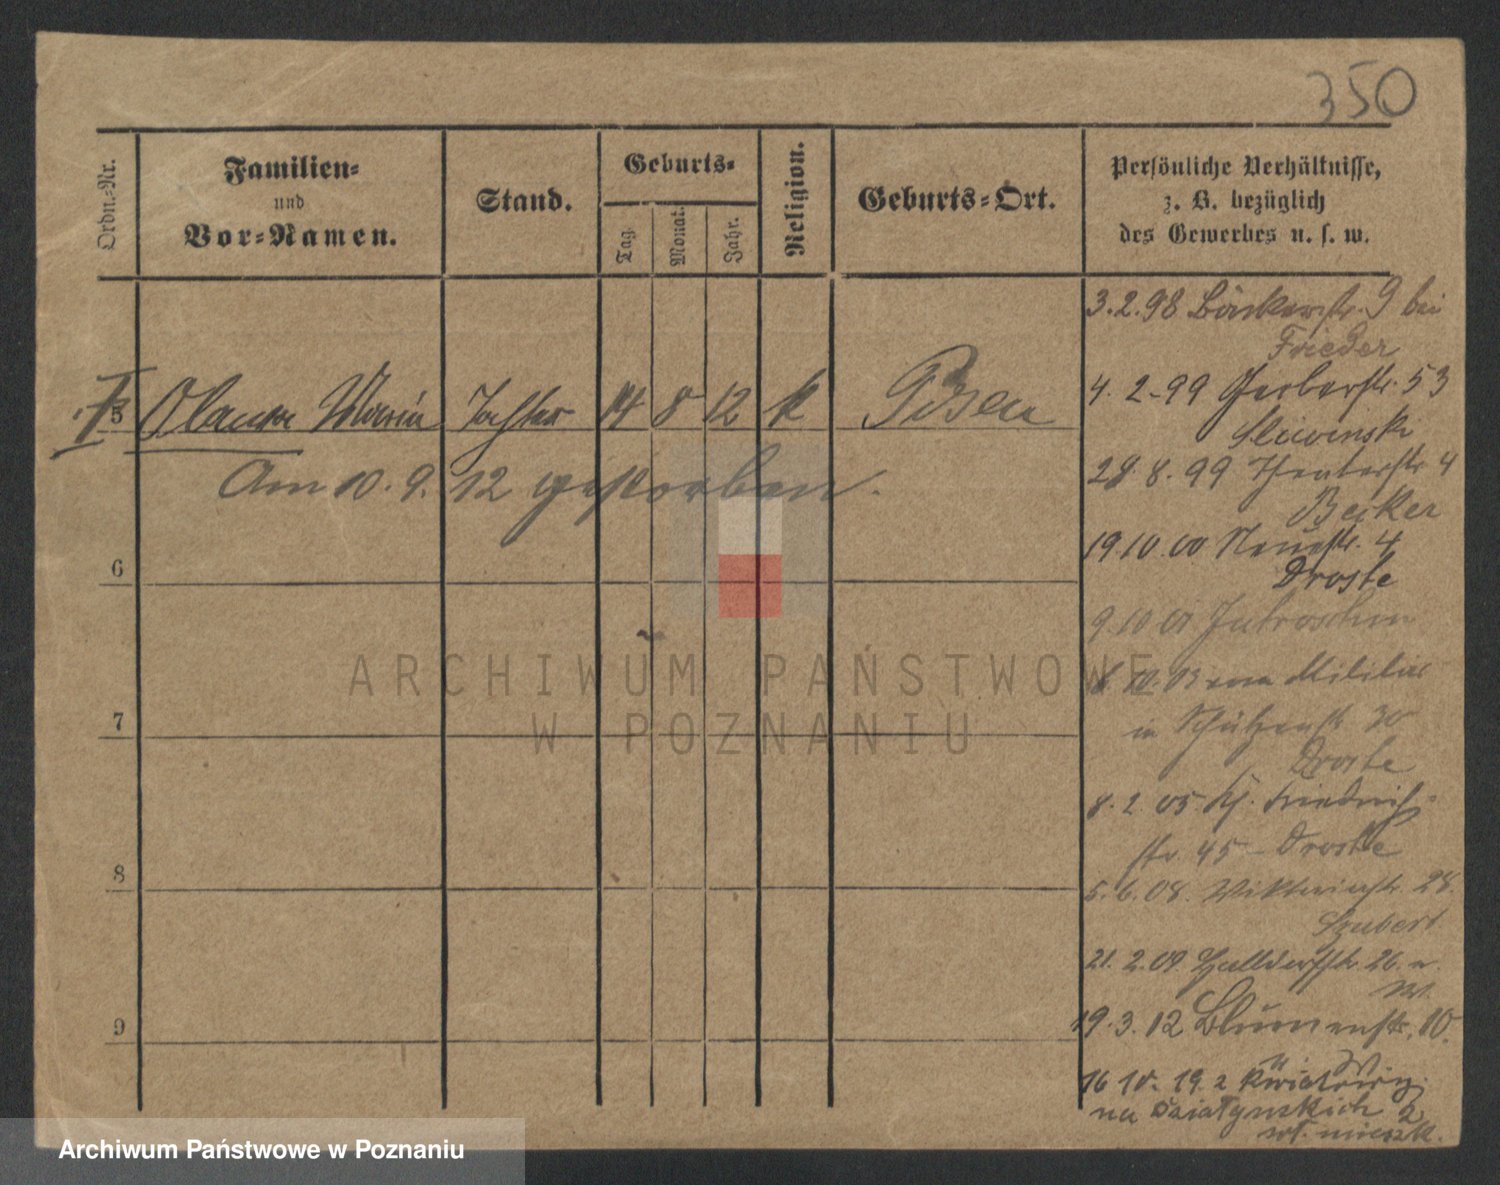 350
Ordn.-Nr.
Familien-
und
Vor-Namen.
Stand.
Geburts-
Tag.
Monat.
Jahr.
Religion.
Geburts-Ort.
Persönliche Verhältnisse,
z. B. bezüglich
des Gewerbes u. s. w.
5 Maria Tochter 14 8 12 k Posen
Am 10. 9. 12 gestorben.
6
7
8
9
3.2.98 Bäckerstr. 9 bei
Frieder
4. 2. 99 Gerberstr. 53
Sliwinski
28. 8. 99 4
Becker
19.10.00 Neuestr. 4
Droste
9.10 01 Jutroschin
vom Militär
in Schützenstr 30
Droste
8. 2. 05. Friedrich-
str. 45 - Droste
5.6.08. Viktoriastr. 28.
Szubert
21. 2.09 26.
W.
19. 3. 12 Blumenstr. 10.
W
16 10. 19. z Kwiatowej
na Działyńskich 2
wł. mieszk.
ARCHIWUM PAŃSTWOWE
W POZNANIU
Archiwum Państwowe w Poznaniu